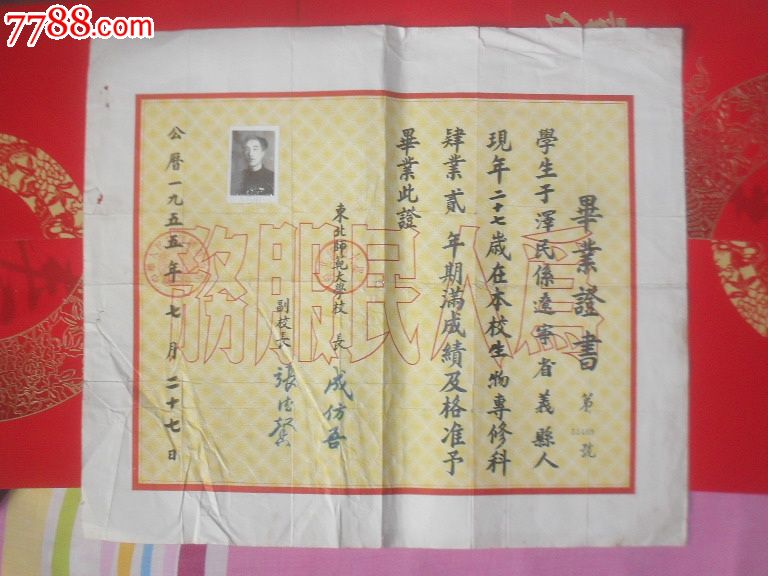 7788.com
畢業證書
第
號
學生于澤民係遼寧省義縣人
現年二十七歲在本校生物專修科
肄業貳年期滿成績及格准予
畢業此證
東北師範大學校長 成仿吾
副校長 張德馨
公曆一九五五年七月二十七日
為人民服務